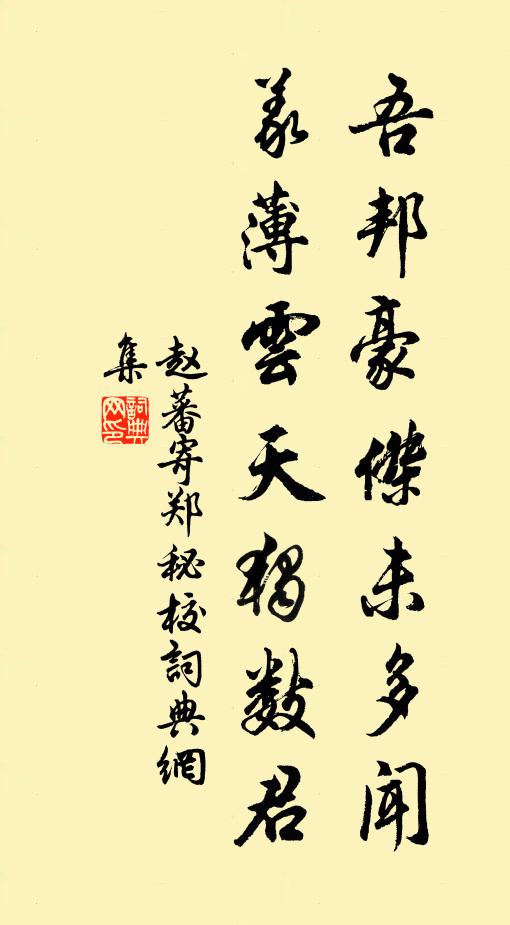 吾邦豪傑未多聞
義薄雲天獨數君
赵蕃寄郑秘校詞典網
集
詞典网印